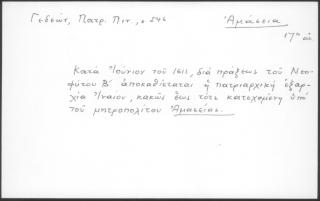 Γεδεών, Πατρ. Πιν., σ 546
Ἀμάσεια
17ος αἰ
Κατὰ Ἰούνιον τοῦ 1611, διὰ πράξεως τοῦ Νεο-
φύτου Β΄ ἀποκαθίσταται ἡ πατριαρχικὴ ἐξαρ-
χία Ἰναίου, κακῶς ἕως τότε κατεχομένη ὑπὸ
τοῦ μητροπολίτου Ἀμασείας.